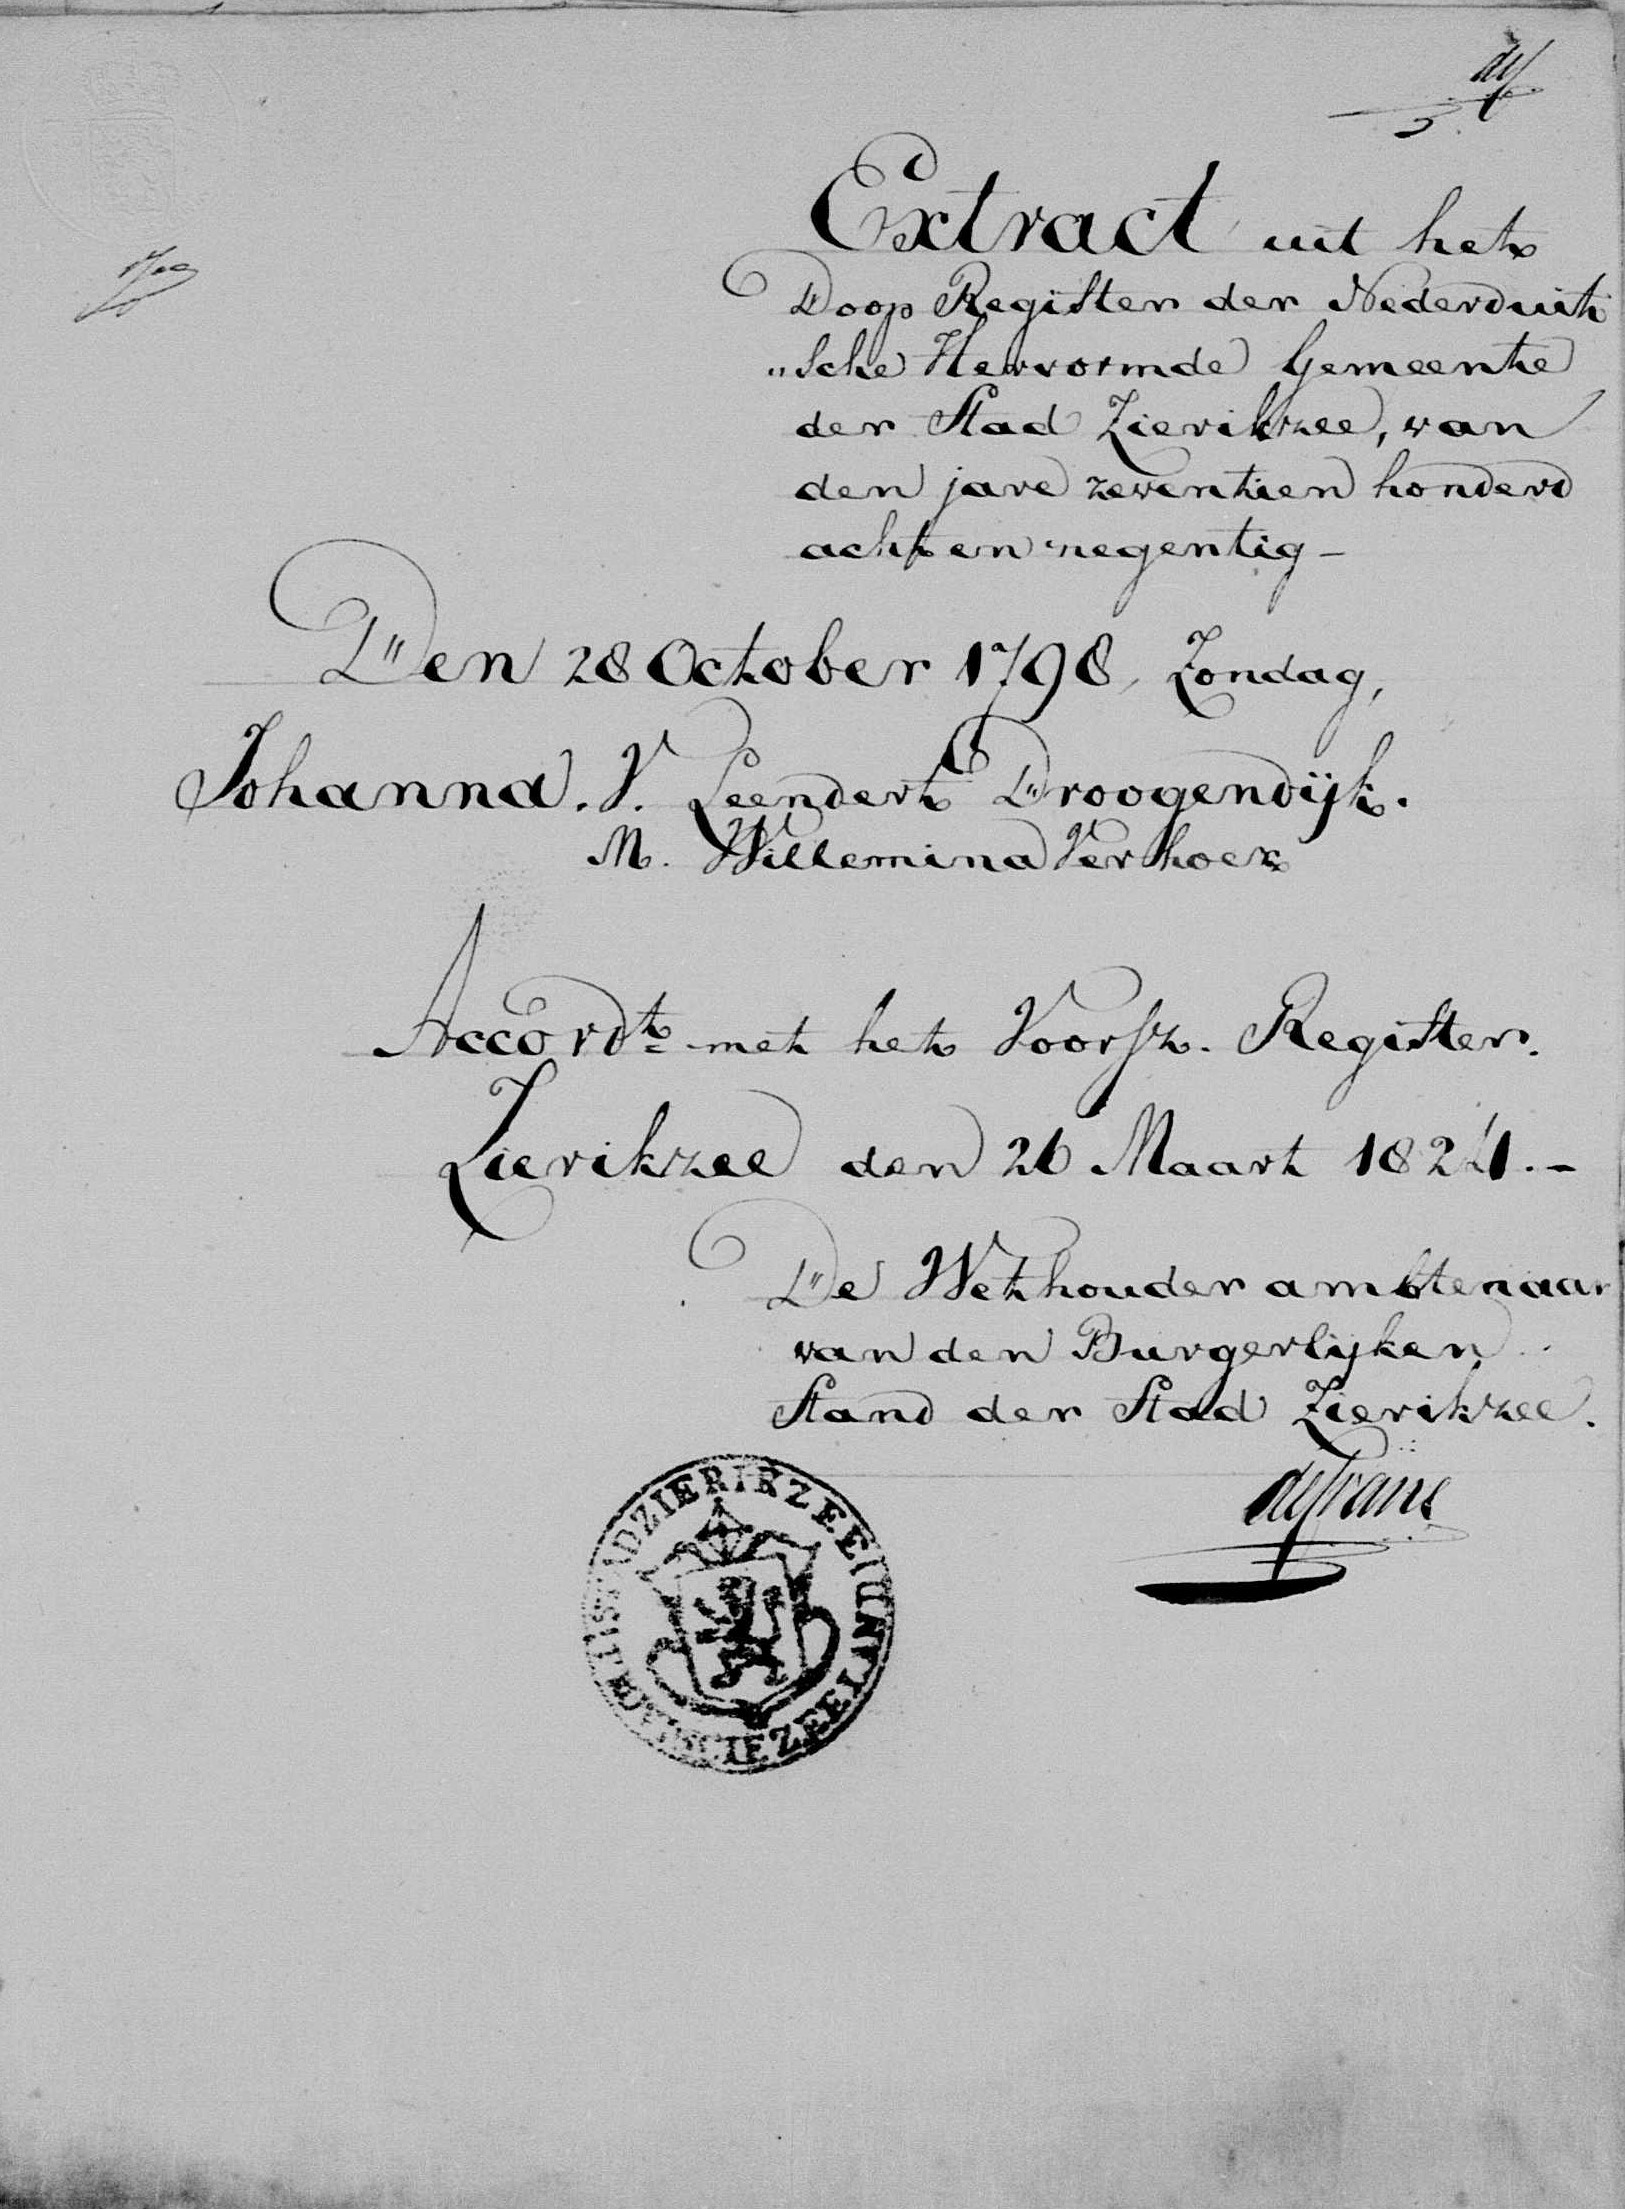 Extract uit het
Doop Register der Nederduit
"sche Hervormde Gemeente
der Stad Zierikzee, van
den jare zeventien honderd
acht en negentig –
Den 28 October 1798, Zondag,
Johanna. V. Leendert Droogendijk.
M. Willemina Verhoex
Accordt. met het Voorsz. Register.
Zierikzee den 26 Maart 1824. –
De Wethouder ambtenaar
van den Burgerlijken
Stand der Stad Zierikzee.
STAD ZIERIKZEE IN DE PROVINCIE ZEELAND